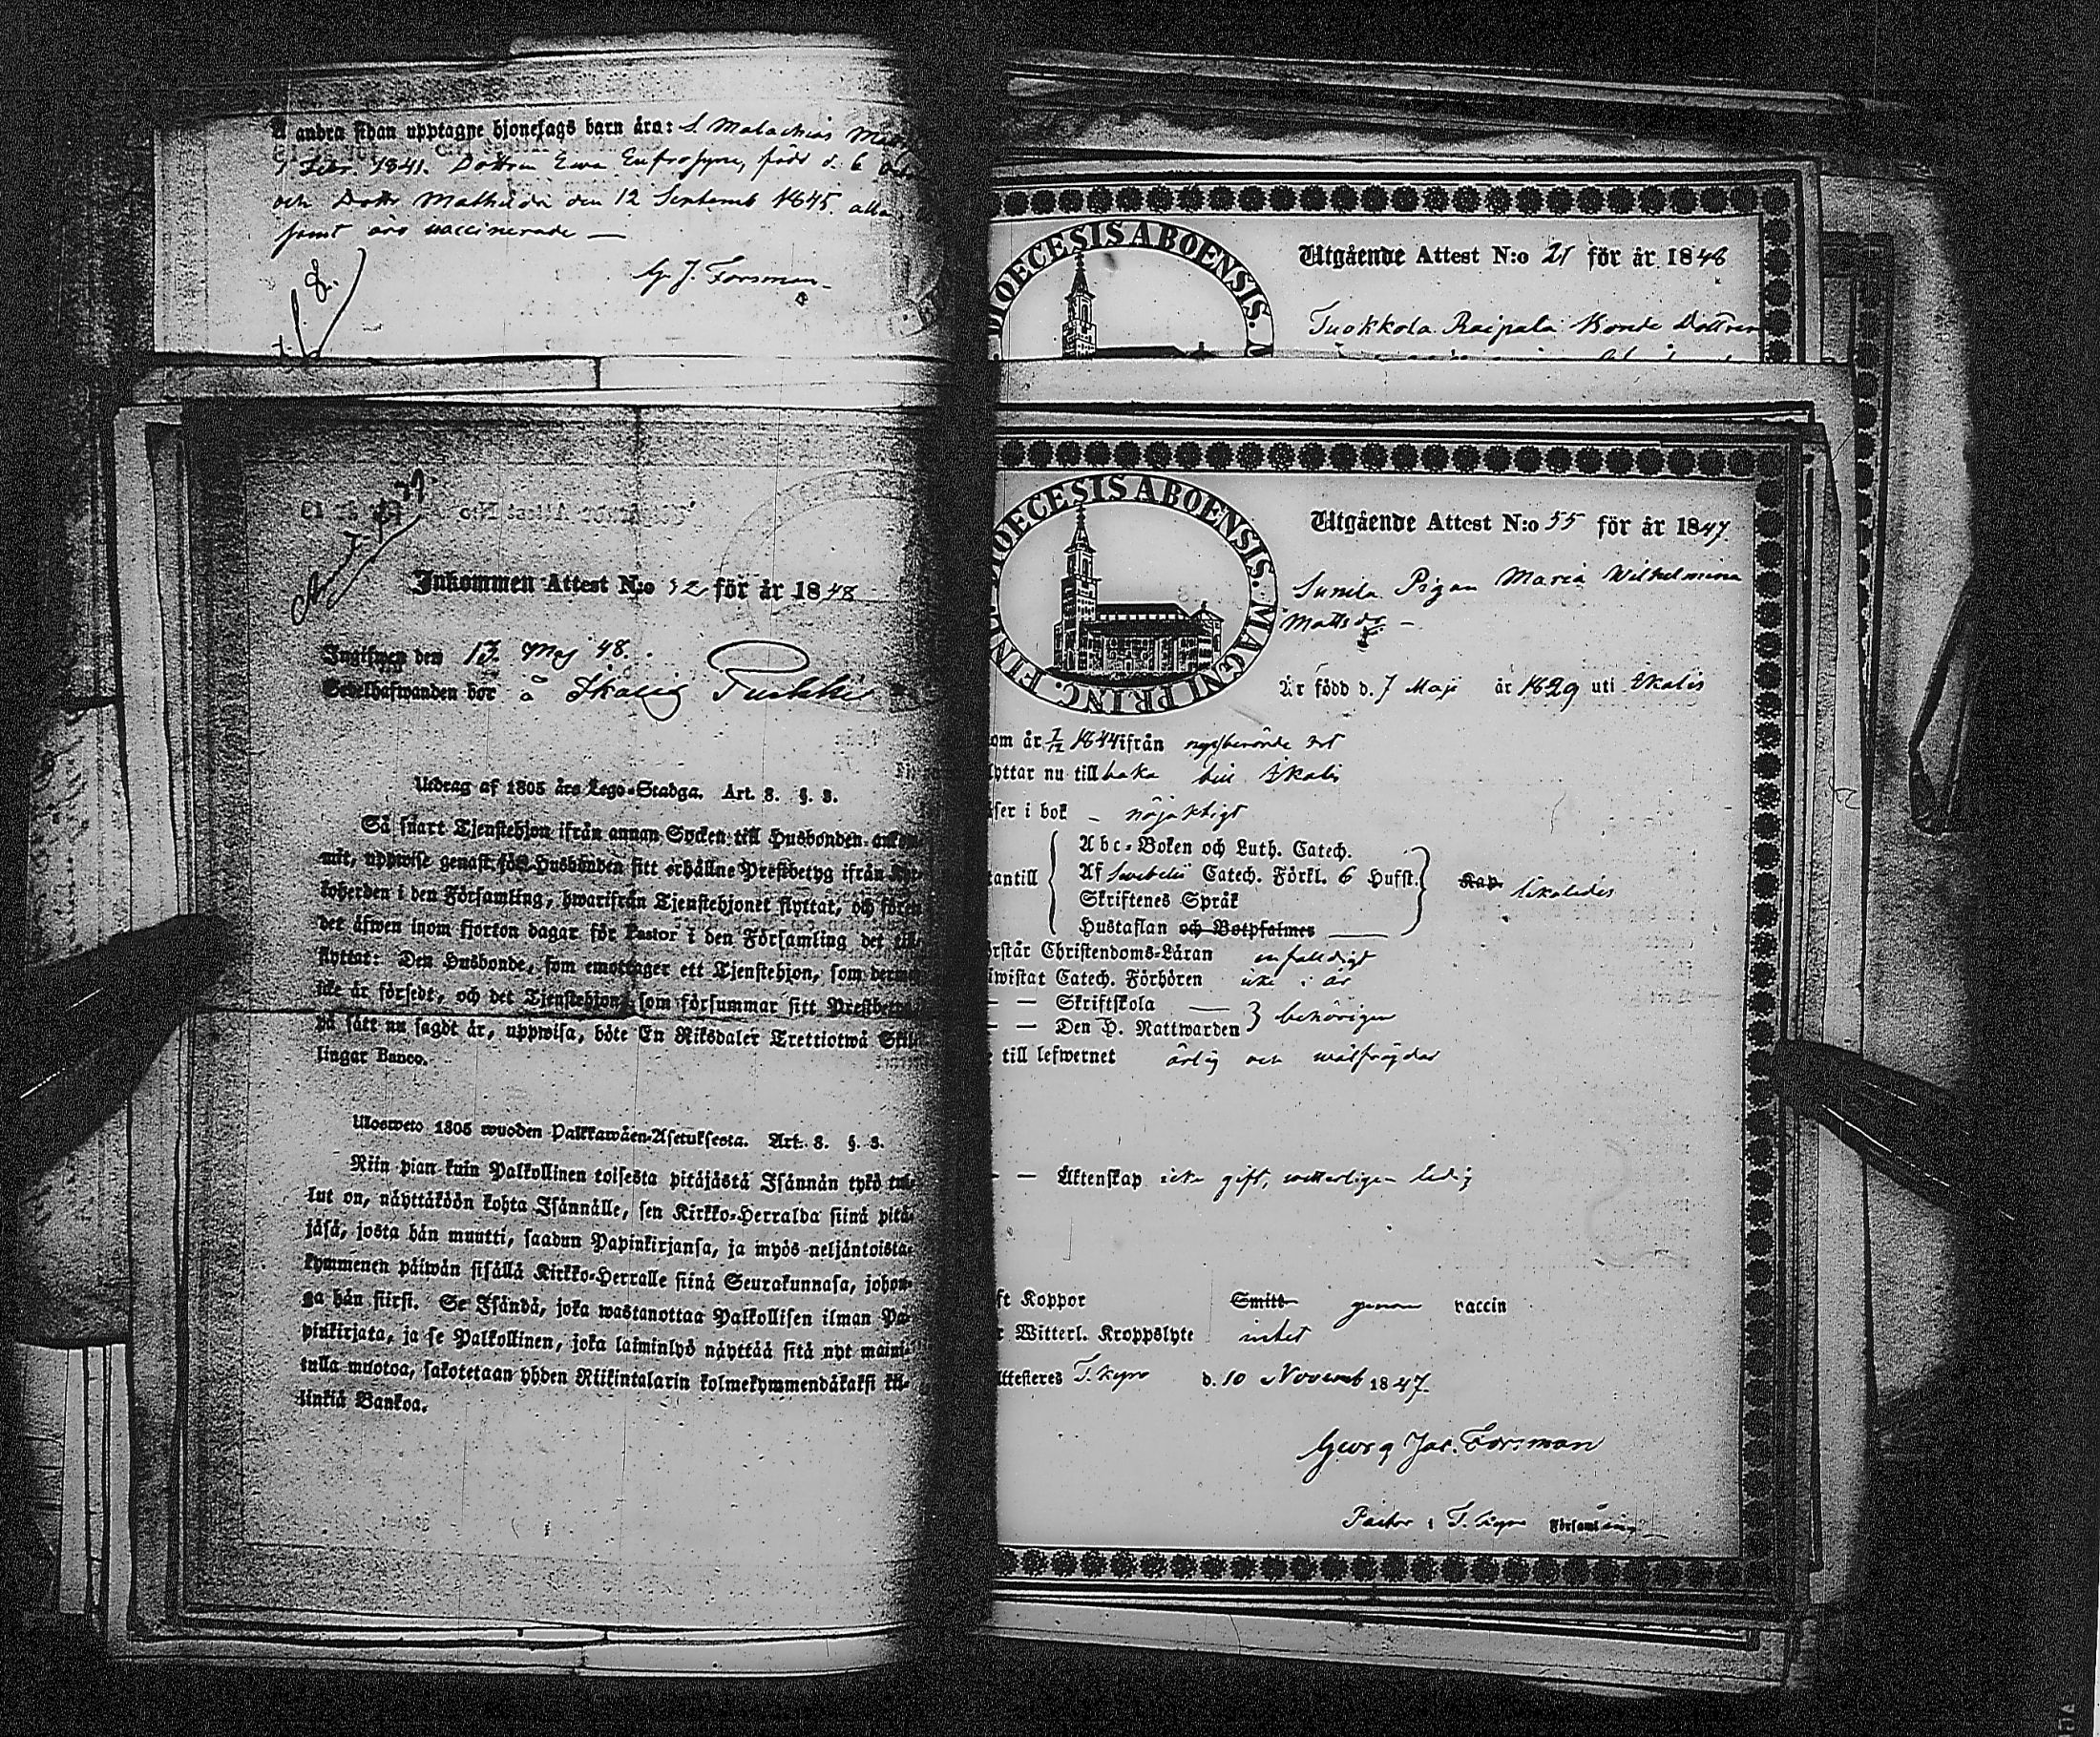 Å andra sidan upptagne hjonelags barn äro: S. Malachias
Febr. 1841. Dottren Ewa Eufrosyne, född d. 6
och Dottr Mathilda den 12 Septemb 1845. alla
samt äro vaccinerade —
G. J. Forsman
Inkommen Attest N:o 32 för år 1848
Ingifwen den 13 Maj 48.
Sedelhafwanden bor å Ikalis
Utdrag af 1805 års Lego-Stadga. Art. 8. §. 3.
Så snart Tjenstehjon ifrån annan Socken till Husbonden
mit, uppwise genast för Husbonden sitt erhållne Prestbetyg ifrån
koherden i den Församling, hwarifrån Tjenstehjonet flyttat, och
det äfwen inom fjorton dagar för Pastor i den Församling det
flyttat: Den Husbonde, som emottager ett Tjenstehjon, som
icke är försedt, och det Tjenstehjon, som försummar sitt
på sätt nu sagdt är, uppwisa, böte En Riksdaler Trettiotwå
lingar Banco.
Ulosweto 1805 wuoden Palkkawäen-Asetuksesta. Art. 8. §. 3.
Niin pian kuin Palkollinen toisesta pitäjästä Isännän tykö tul-
lut on, näyttäköön kohta Isännälle, sen Kirkko-Herralda siinä pitä-
jäsä, josta hän muutti, saadun Papinkirjansa, ja myös neljäntoista-
kymmenen päiwän sisällä Kirkko-Herralle siinä Seurakunnasa, johon-
ga hän siirsi. Se Isändä, joka wastanottaa Palkollisen ilman Pa-
pinkirjata, ja se Palkollinen, joka laiminlyö näyttää sitä nyt maini-
tulla muotoa, sakotetaan yhden Riikintalarin kolmekymmendäkaksi kil-
linkiä Bankoa.
DIOECESIS ABOENSIS.
Utgående Attest N:o 21 för år 1846
Tuokkola Raipala Bonde Dottren
DIOECESIS ABOENSIS. MAGNI PRINC. FINL.
Utgående Attest N:o 55 för år 1847.
Sumla Pigan Maria Wilhelmina
Mattsdr –
Är född d. 7 Maji år 1829 uti Ikalis
om år 7/12 1844 ifrån nyssberörde ort
lyttar nu tillbaka till Ikalis
äser i bok – nöjaktigt
Abc-Boken och Luth. Catech.
antill Af Swebelii Catech. Förkl. 6 Hufst. likaledes
Skriftenes Språk
Hustaflan och Botpsalmer
örstår Christendoms-Läran enfaldigt
iwistat Catech. Förhören icke i år
— — Skriftskola
— — Den H. Nattwarden } behörigen
till lefwernet ärlig och wälfrägdad
— — Äktenskap icke gift, witterligen ledig
ft Koppor Smitt genom vaccin
r Witterl. Kroppslyte intet
Attesteres T. Kyro d. 10 Novemb 1847.
Georg Jac. Forsman
Pastor i T. Kyro Församling